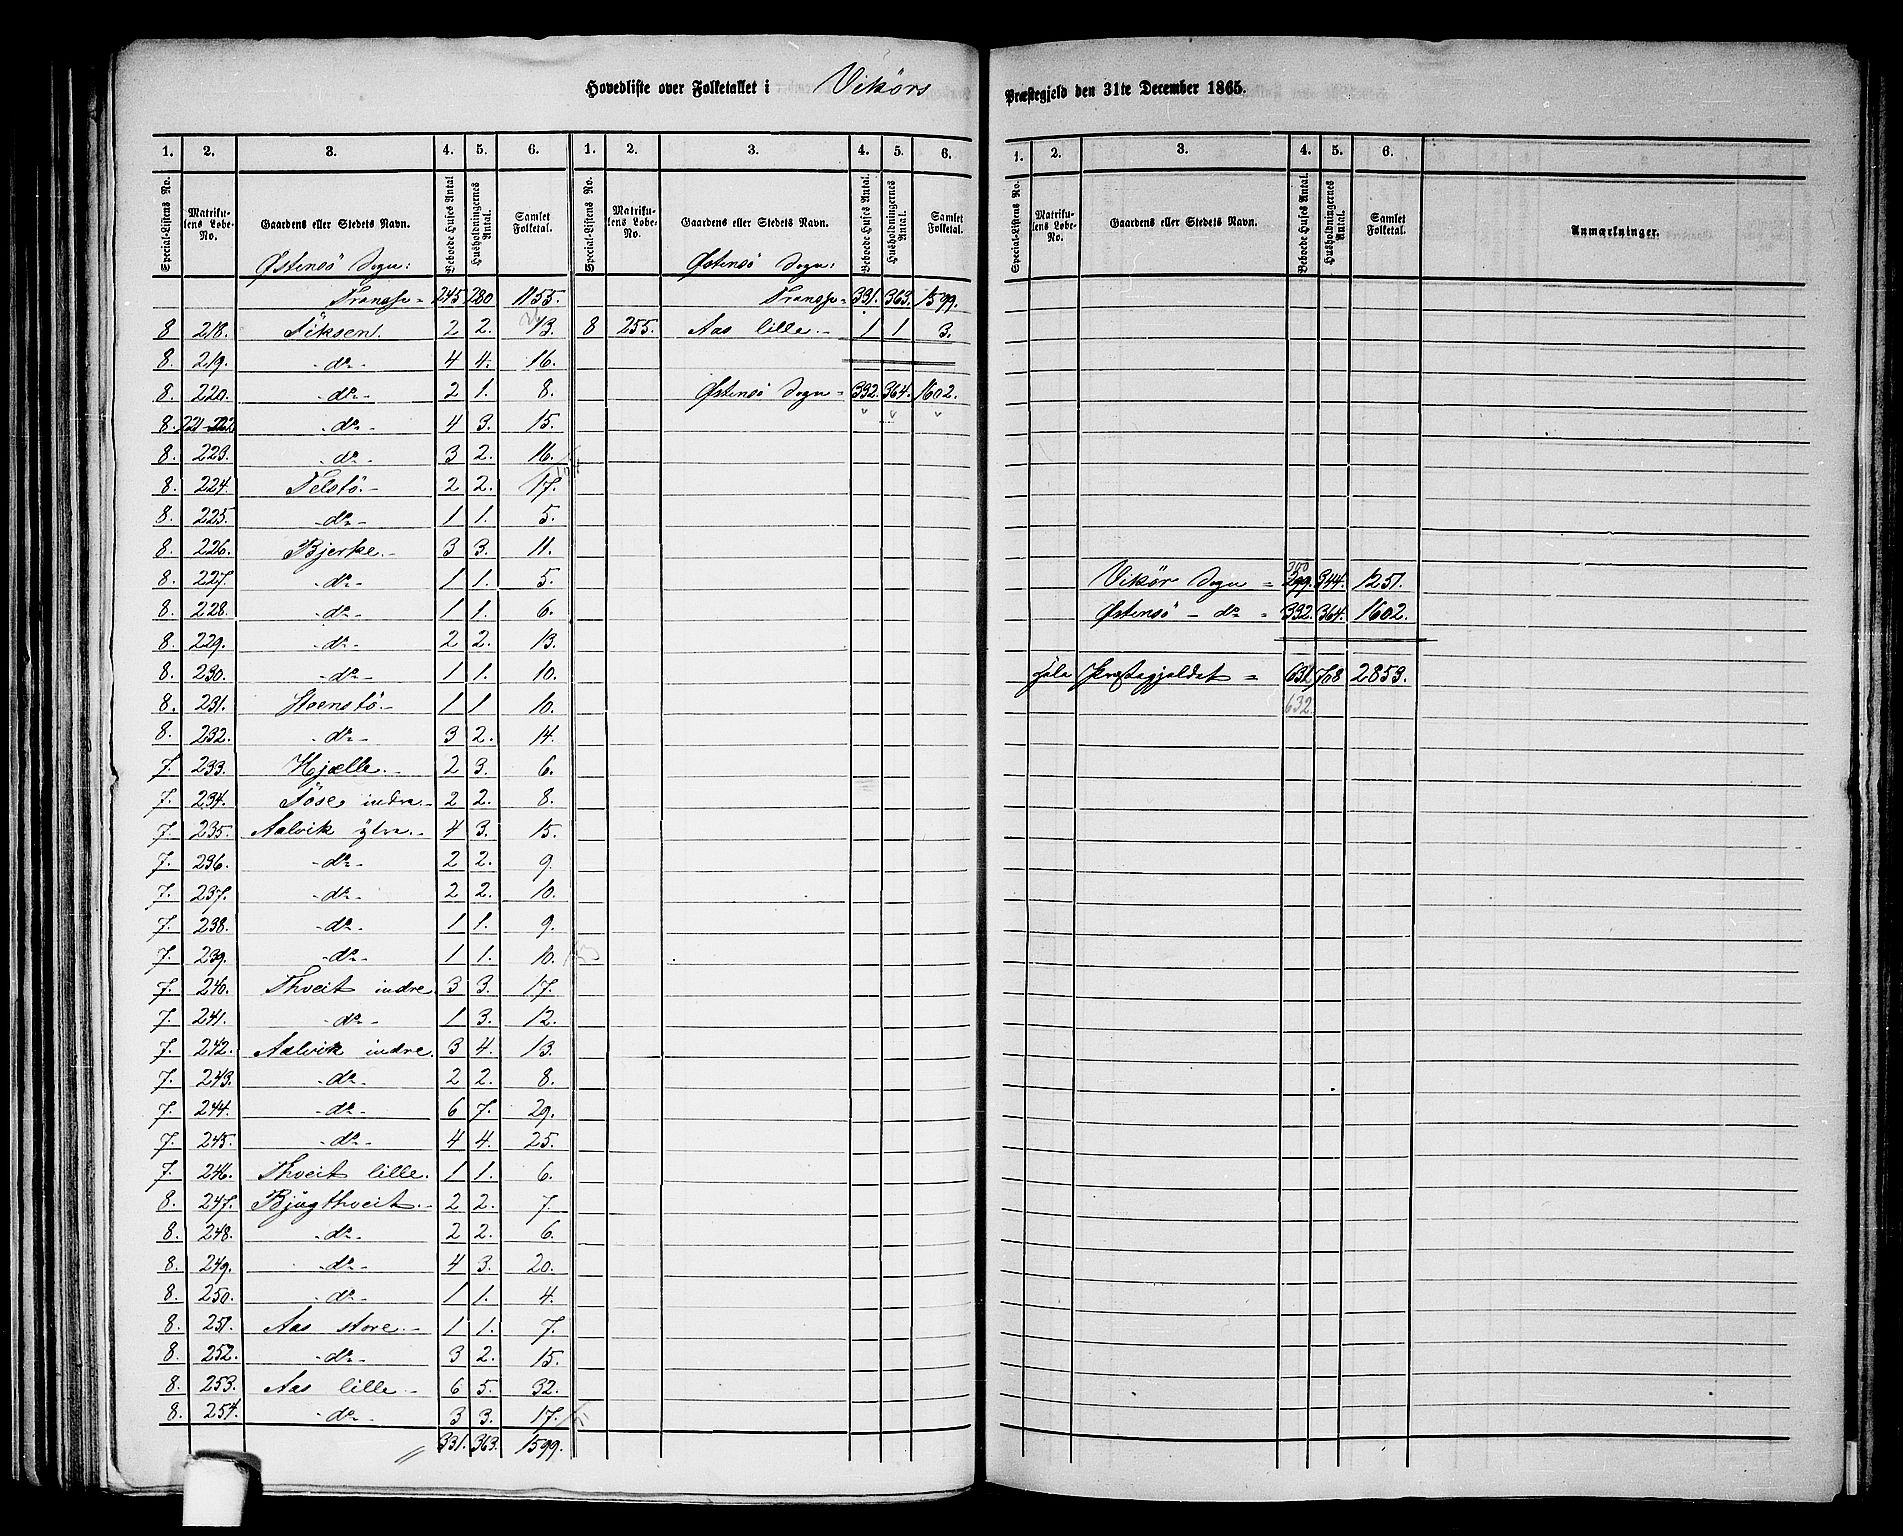 Hovedliste over Folketallet i Vikörs Præstegjeld den 31te December 1865.
1. 2. 3. 4. 5. 6. 1. 2. 3. 4. 5. 6.
Special-Listens No. Matrikulens Løbe-No. Gaardens eller Stedets Navn. Beboede Huses Antal Husholdningernes Antal. Samlet Folketal. Special-Listens No. Matrikulens Løbe-No. Gaardens eller Stedets Navn. Beboede Huses Antal. Husholdningernes Antal. Samlet Folketal.
Østensö Sogn: Østensö Sogn:
Transp = 245 280 1155. Transp = 331. 363. 1599.
8 218. 2 2. 13. 8 255. Aas lille.- 1 1 3.
8. 219. -do- 4 4. 16.
8. 220. -do- 2 1. 8. Østensö Sogn = 332. 364. 1602.
8. 221-222 -do- 4 3. 15. " " "
8. 223. -do- 3 2. 16.
8. 224. Telstö.- 2 2. 17.
8. 225. -do- 1 1. 5.
8. 226. Bjerke.- 3 3. 11.
8. 227. -do- 1 1. 5.
8. 228. -do- 1 1. 6.
8. 229. -do- 2 2. 13.
8. 230. -do- 1 1. 10.
8. 231. Steenstö.- 1 1 10.
8. 232. -do- 3 2. 14.
7. 233. Kjælle.- 2 3. 6.
7. 234. indre.- 2 2. 8.
7. 235. Aalvik ytre.- 4 3. 15.
7. 236. -do- 2 2. 9.
7. 237. -do- 2 2. 10.
7. 238. -do- 1 1. 9.
7. 239. -do- 1 1. 10.
7. 240. Thveit indre. 3 3. 17.
7. 241. -do- 1 3. 12.
7. 242. Aalvik indre. 3 4. 13.
7. 243. -do- 2 2. 8.
7. 244. -do- 6 7. 29.
7. 245. -do- 4 4. 25.
7. 246. Thveit lille. 1 1. 6.
8. 247. Bjugthveit.- 2 2. 7.
8. 248. -do- 2 2. 6.
8. 249. -do- 4 3. 20.
8. 250. -do- 1 1. 4.
8. 251. Aas store.- 1 1. 7.
8. 252. -do- 3 2. 15.
8. 253. Aas lille.- 6 5. 32.
8. 254. -do- 3 3. 17.
331. 363. 1599.
1. 2. 3. 4. 5. 6.
Special-Listens No. Matrikulens Løbe-No. Gaardens eller Stedets Navn. Beboede Huses Antal. Husholdningernes Antal. Samlet Folketal. Anmærkninger.
300
Vikör Sogn = 299. 344. 1251.
Østensö - do - 332. 364. 1602.
Præstegjeldet = 631. 708 2853.
632.